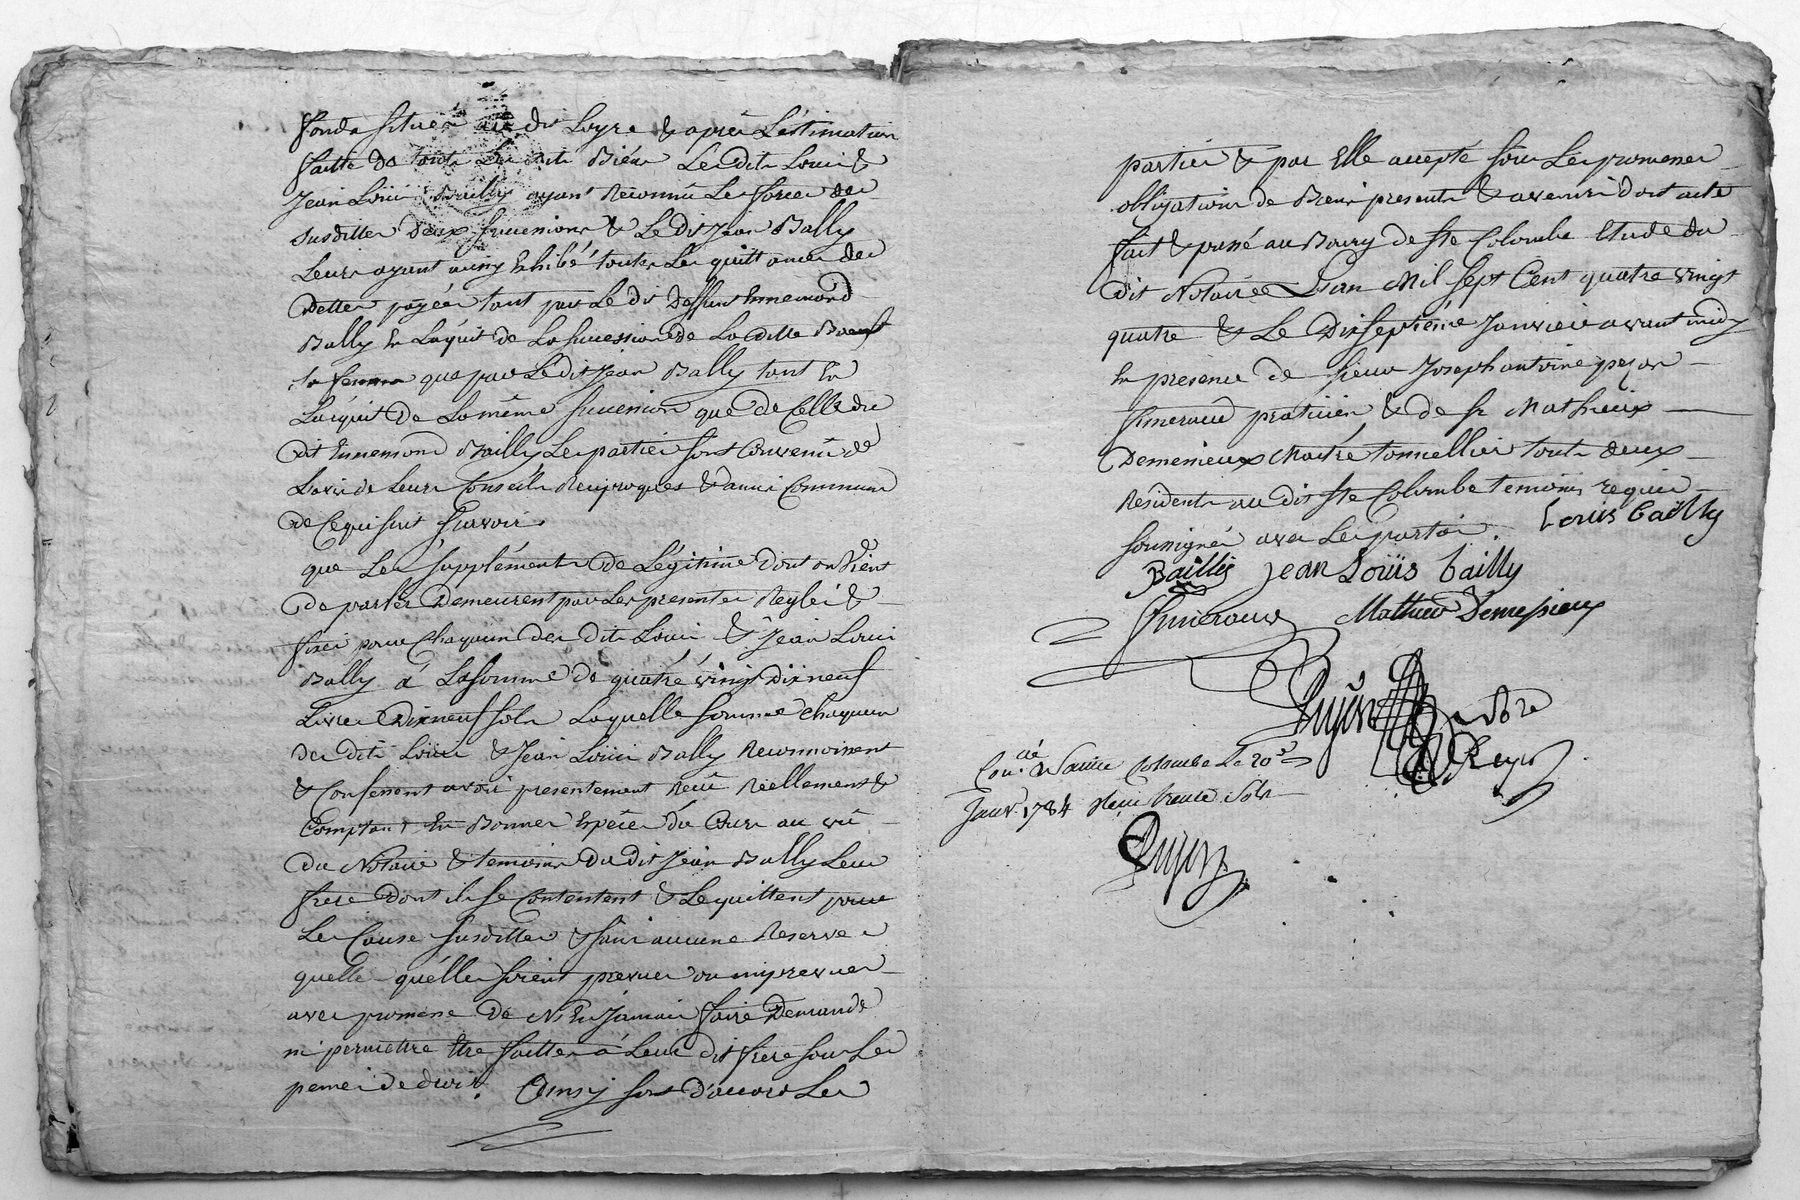 fonds situés au dit Loyre & après L'estimation
faitte de touts Les dits Biens Les dits Louis &
Jean Louis Bailly ayant Reconnu Les forces des
susdittes deux successions & Le dit Jean Bally
Leurs ayant aussy Exhibé toutes Les quittances des
Dettes payées tant par Le dit Deffunt Ennemond
Bally En L'aquit de La succession de La ditte Boeuf
sa femme que par Le dit Jean Bally tant En
L'aquit de La même succession que de Celle du
dit Ennemond Bailly Les parties sont Convenües de
L'avis de Leurs Conseils Reciproques & d'amis Communs
de Ce qui suit sçavoir.
que Les suppléments de Légitime dont on Vient
de parler Demeurent par Les presentes Reglés &
fixés pour Chaqun des dits Louis & Jean Louis
Bally à La somme de quatré vingt Dixneuf
Livres Dixneuf sols Laquelle somme chaqun
des dits Loüis & Jean Loüis Bally Reconnoissent
& Confessent avoir presentement Reçü Réellement &
Comptant En Bonnes Espèces du Cours au vü
du Notaire & temoins du dit Jean Bally Leur
frere dont ils se Contentent & Le quittent pour
Les Causes susdittes & sans aucune Reserve
quelle quélles soient prevues ou imprevues
avec promesse de N'En Jamais faire Demande
ni permettre Etre faittes à Leur dit frere sous Les
peines de droit. Ainsy sont d'accord Les
parties & par Elle accepté sous Les promesses
obligations de Biens presents & avenir dont acte
fait & passé au Bourg de Ste Colombe Etude du
dit Notaire L'an Mil Sept Cent quatre vingt
quatre & Le Dixseptiéme Janvier avant midy
En presence de sieur Joseph antoine
praticien & de sr Mathieux
Demenieux Maitre tonnellier touts deux
Residents au dit Ste Colombe temoins requis
soussignés avec Les parties. Louis bailly
Baillij Jean Loüis bailly
Mathieu Demenieux
Con.lé à Sainte Colombe Le 20
Janv. 1784 Reçu trente sols